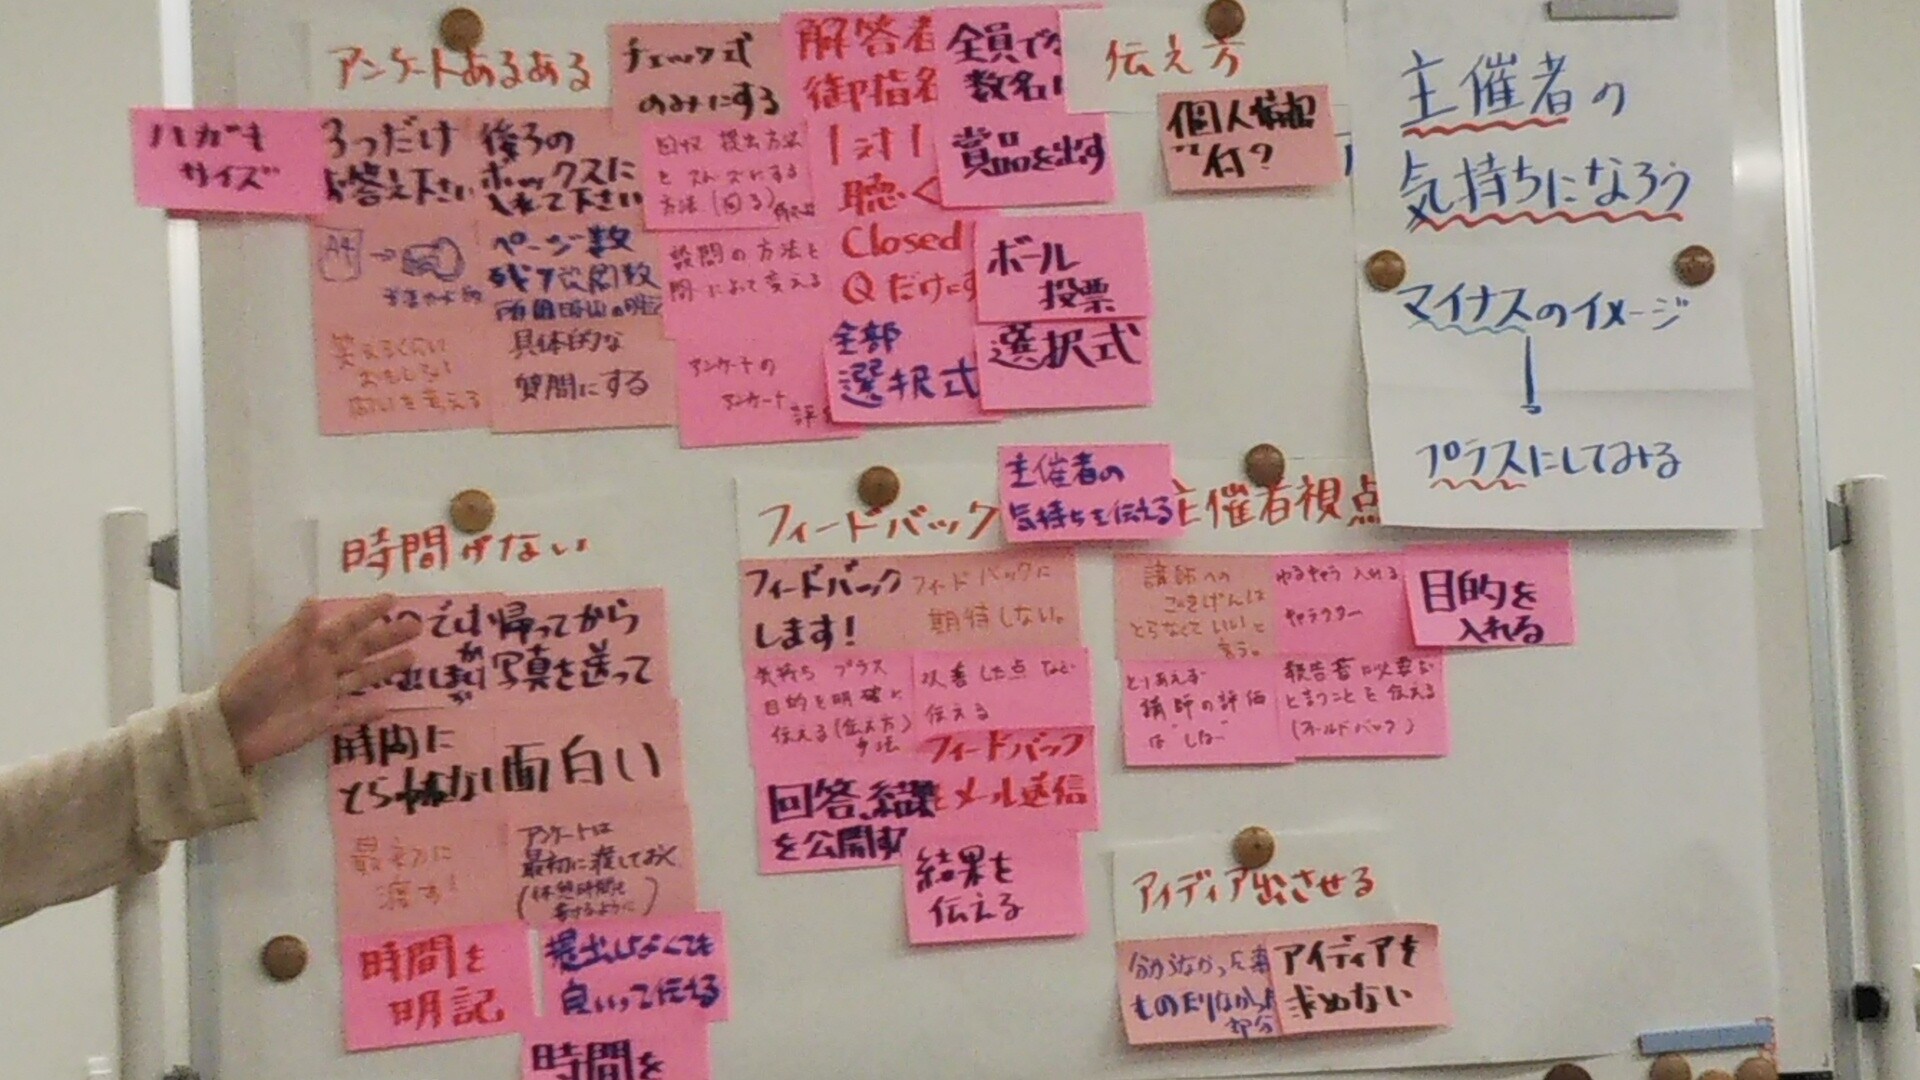 アンケートあるある
ハガキ
サイズ
3つだけ
お答え下さい
後ろの
ボックスに
入れて下さい
チェック式
のみにする
解答者
御指名
全員で
数名
伝え方
個人情報
付?
回収 提出方法
1対1
聴く
賞品を出す
A4
ページ数
設問の方法を
Closed
Qだけにす
ボール
投票
笑えるくらい
おもしろい
問いを考える
具体的な
質問にする
アンケートの
アンケート
全部
選択式
選択式
主催者の
気持ちになろう
マイナスのイメージ
プラスにしてみる
時間がない
帰ってから
写真を送って
時間に
とらわれない
面白い
最初に
渡す!
アンケートは
最初に渡しておく
時間を
明記
提出しなくても
良いって伝える
時間を
フィードバック
フィードバック
します!
フィードバックに
期待しない。
気持ちプラス
目的を明確に
伝える(伝え方)
方法
改善した点など
伝える
回答、結果
を公開す
フィードバック
メール送信
結果を
伝える
主催者の
気持ちを伝える
主催者視点
講師への
ごきげんは
とらなくていいと
言う。
ゆるキャラ入れる
キャラクター
目的を
入れる
とりあえず
講師の評価
は
報告書に必要だ
と言うことを伝える
アイディア出させる
分からなかった事
ものたりなかった
部分
アイディアを
求めない